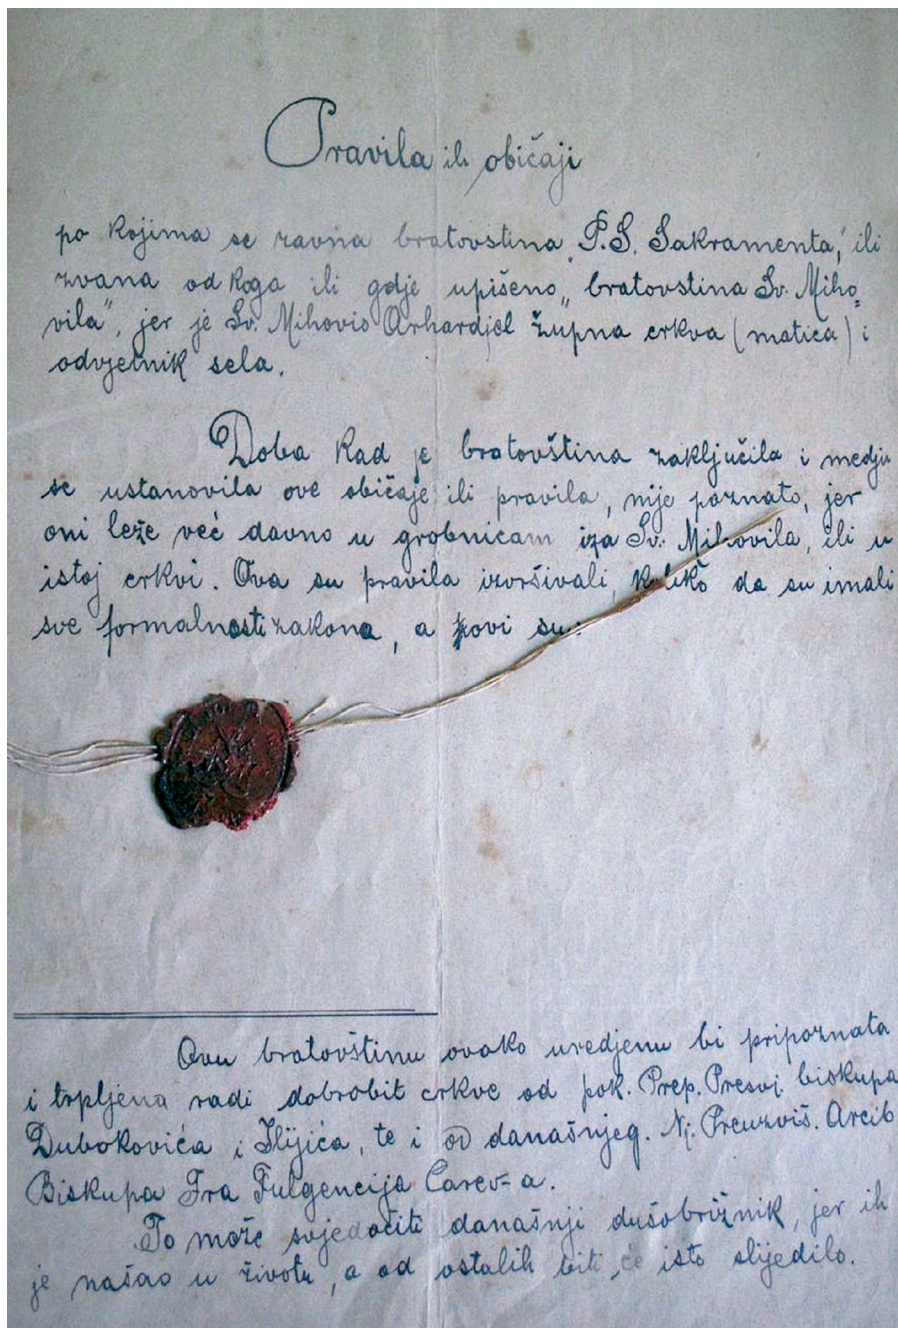 Pravila ili običaji
po kojima se ravna bratovština „P. S. Sakramenta," ili
zvana od koga ili gdje upišeno „bratovstina Sv. Miho-
vila", jer je Sv. Mihovio Arhardjel župna crkva (matica) i
odvjetnik sela.
Doba kad je bratovština zaključila i medju
se ustanovila ove običaje ili pravila, nije poznato, jer
oni leže već davno u grobnicam iza Sv. Mihovila, ili u
istoj crkvi. Ova su pravila izvršivali, koliko da su imali
sve formalnosti zakona, a ovi su:
Ovu bratovštinu ovako uredjenu bi pripoznata
i trpljena radi dobrobit crkve od pok. Prep. Presvj. biskupa
Dubokovića i Ilijića, te i od današnjeg. Nj. Preuzviš. Arcib
Biskupa Fra Fulgencija Carev-a.
To može svjedočiti današnji dušobrižnik, jer ih
je našao u životu, a od ostalih biti će isto slijedilo.